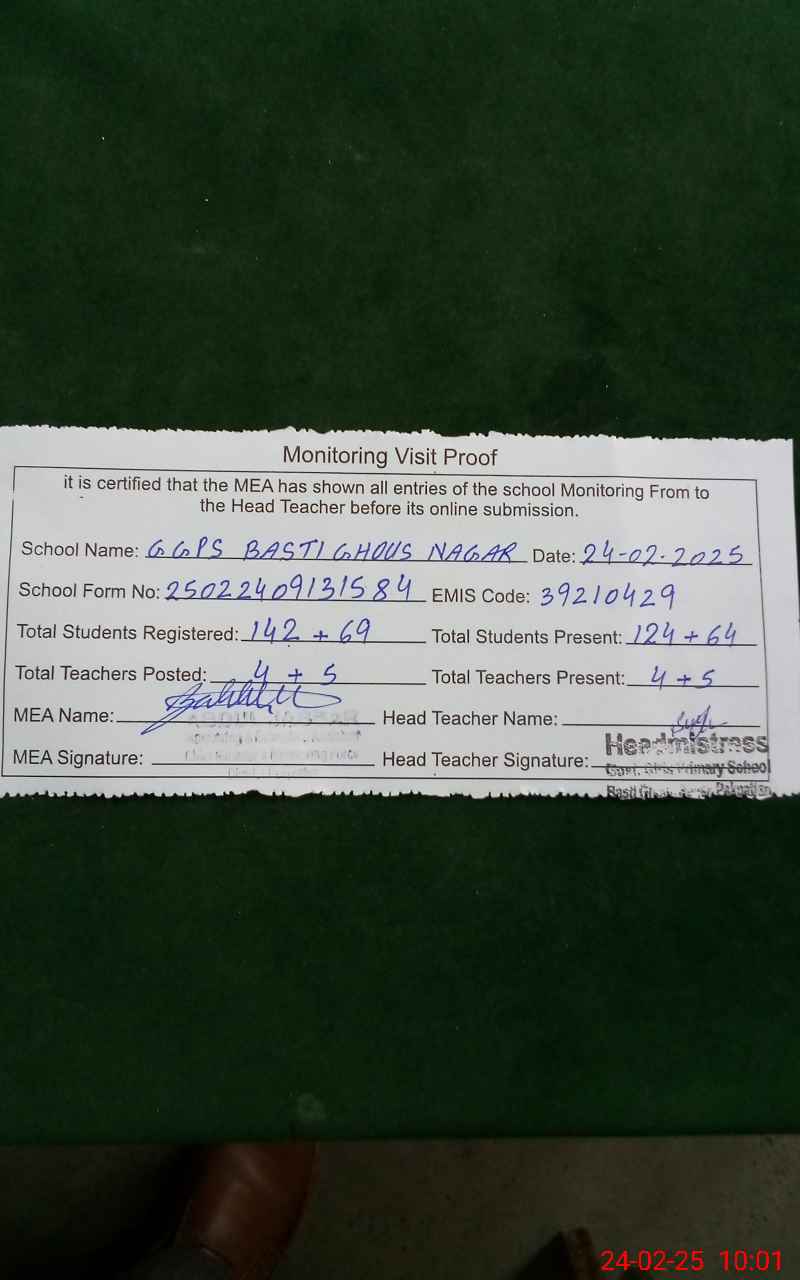 Monitoring Visit Proof
it is certified that the MEA has shown all entries of the school Monitoring From to
the Head Teacher before its online submission.
School Name: GGPS BASTI GHOUS NAGAR Date: 24-02-2025
School Form No: 25022409131584 EMIS Code: 39210429
Total Students Registered: 142 + 69 Total Students Present: 124 + 64
Total Teachers Posted: 4 + 5 Total Teachers Present: 4 + 5
MEA Name: Head Teacher Name:
MEA Signature: Head Teacher Signature:
Headmistress
Govt. Girls Primary School
Basti Pakpattan
24-02-25 10:01